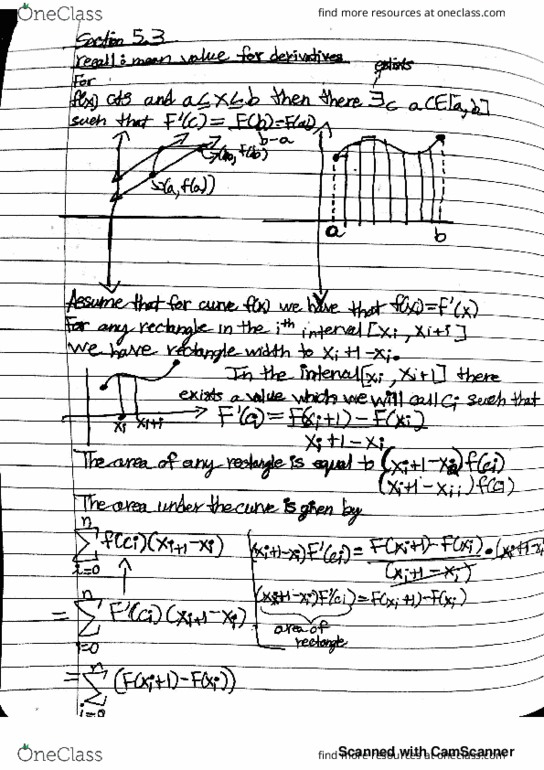 OneClass
find more resources at oneclass.com
Section 5.3
recall: mean value for derivatives
For exists
f(x) cts and a≤x≤b then there ∃c a CE[a,b]
such that F'(c) = F(b)-F(a)
b-a
(b, f(b))
(a, f(a))
a b
Assume that for curve f(x) we have that f(x)=F'(x)
For any rectangle in the ith interval [xi, xi+1]
we have rectangle width to xi+1-xi.
In the interval [xi, xi+1] there
exists a value which we will call Ci such that
xi xi+1
F'(ci) = F(xi+1) - F(xi)
xi+1 - xi
The area of any rectangle is equal to (xi+1-xi)f(ci)
(xi+1-xi)f(ci)
The area under the curve is given by
n
Σ f(ci)(xi+1-xi)
i=0
(xi+1-xi)F'(ci) = F(xi+1)-F(xi) • (xi+1-xi
(xi+1-xi)
= n
Σ F'(ci)(xi+1-xi)
i=0
(xi+1-xi)F'(ci) = F(xi+1)-F(xi)
area of
rectangle
= n
Σ (F(xi+1)-F(xi))
i=0
Scanned with CamScanner
OneClass
find more resources at oneclass.com